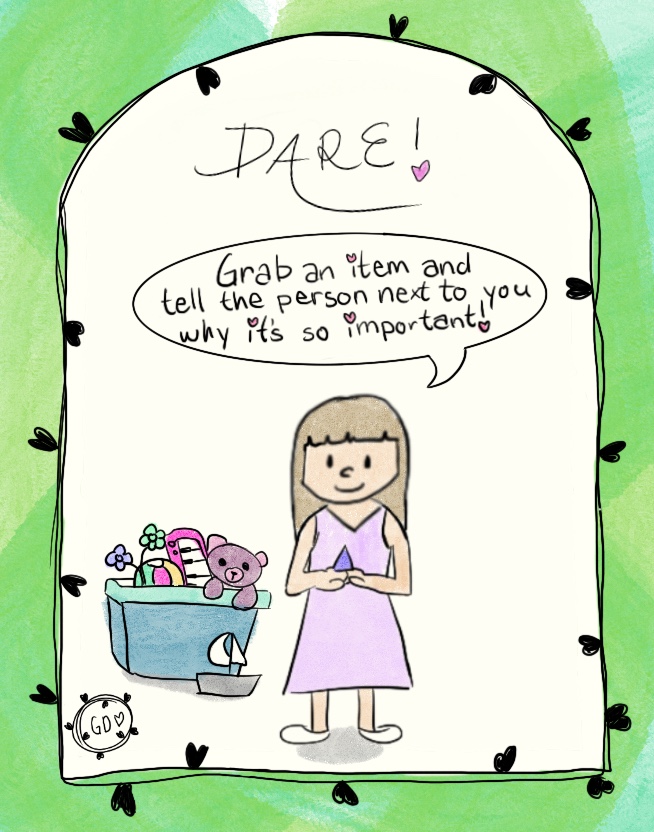 DARE!
Grab an item and
tell the person next to you
why it's so important!
GD